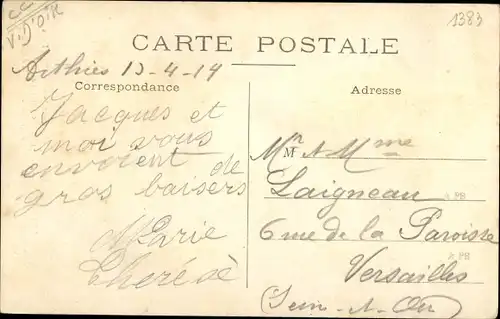 CC
V.D'OIR
1383
CARTE POSTALE
Arthies 13-4-14
Correspondance
Jacques et
moi vous
envoient de
gros baisers
Marie
Thérésè
Adresse
Mr & Mme
Laigneau
6 rue de la Paroisse
Versailles
(Sein-&-Oise)